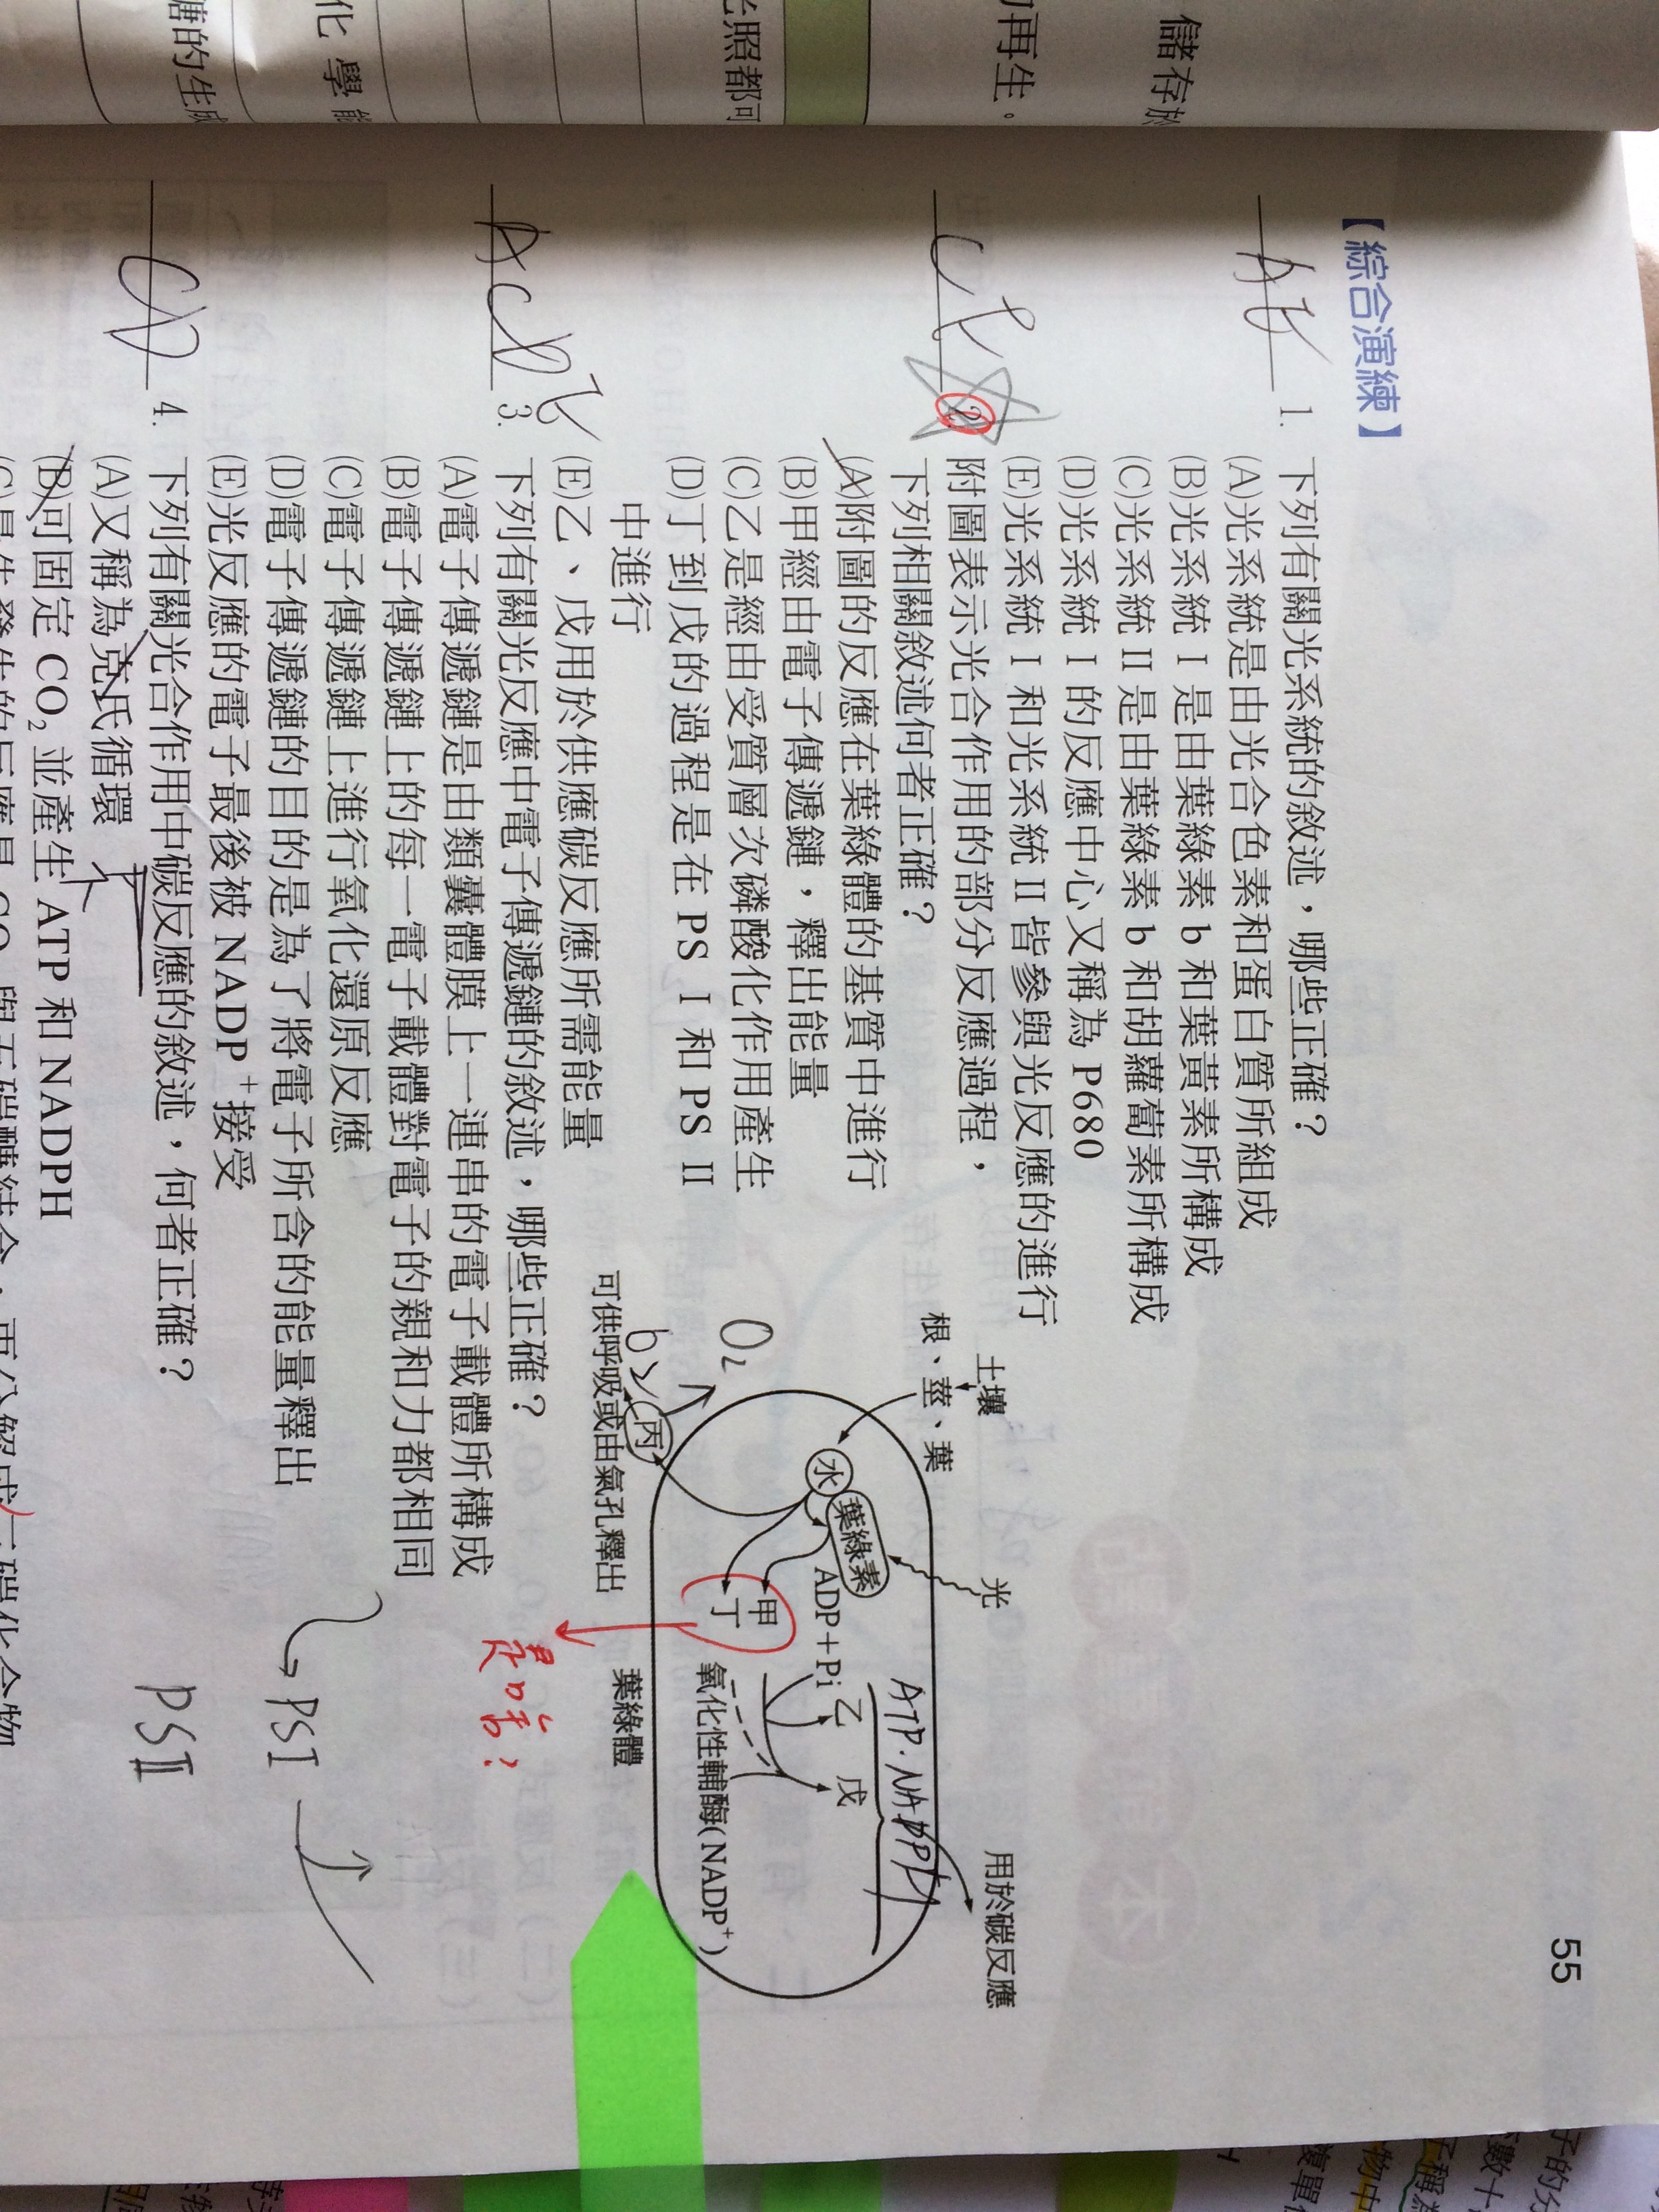 55
儲存於
的再生。
光照都可
化學能
糖的生成
【綜合演練】
AE 1. 下列有關光系統的敘述，哪些正確？
(A)光系統是由光合色素和蛋白質所組成
(B)光系統 I 是由葉綠素 b 和葉黃素所構成
(C)光系統 II 是由葉綠素 b 和胡蘿蔔素所構成
(D)光系統 I 的反應中心又稱為 P680
(E)光系統 I 和光系統 II 皆參與光反應的進行
CE 2. 附圖表示光合作用的部分反應過程，
下列相關敘述何者正確？
(A)附圖的反應在葉綠體的基質中進行
(B)甲經由電子傳遞鏈，釋出能量
(C)乙是經由受質層次磷酸化作用產生
(D)丁到戊的過程是在 PS I 和 PS II
中進行
(E)乙、戊用於供應碳反應所需能量
土壤
根、莖、葉
光
用於碳反應
水
葉綠素
ADP+Pi
乙
戊
ATP.NADPH
甲
丁
氧化性輔酶(NADP⁺)
丙
O₂
葉綠體
可供呼吸或由氣孔釋出
是啥?
ACDE 3. 下列有關光反應中電子傳遞鏈的敘述，哪些正確？
(A)電子傳遞鏈是由類囊體膜上一連串的電子載體所構成
(B)電子傳遞鏈上的每一電子載體對電子的親和力都相同
(C)電子傳遞鏈上進行氧化還原反應
(D)電子傳遞鏈的目的是為了將電子所含的能量釋出
(E)光反應的電子最後被 NADP⁺接受
PSI
PSII
CD 4. 下列有關光合作用中碳反應的敘述，何者正確？
(A)又稱為克氏循環
(B)可固定 CO₂ 並產生 ATP 和 NADPH